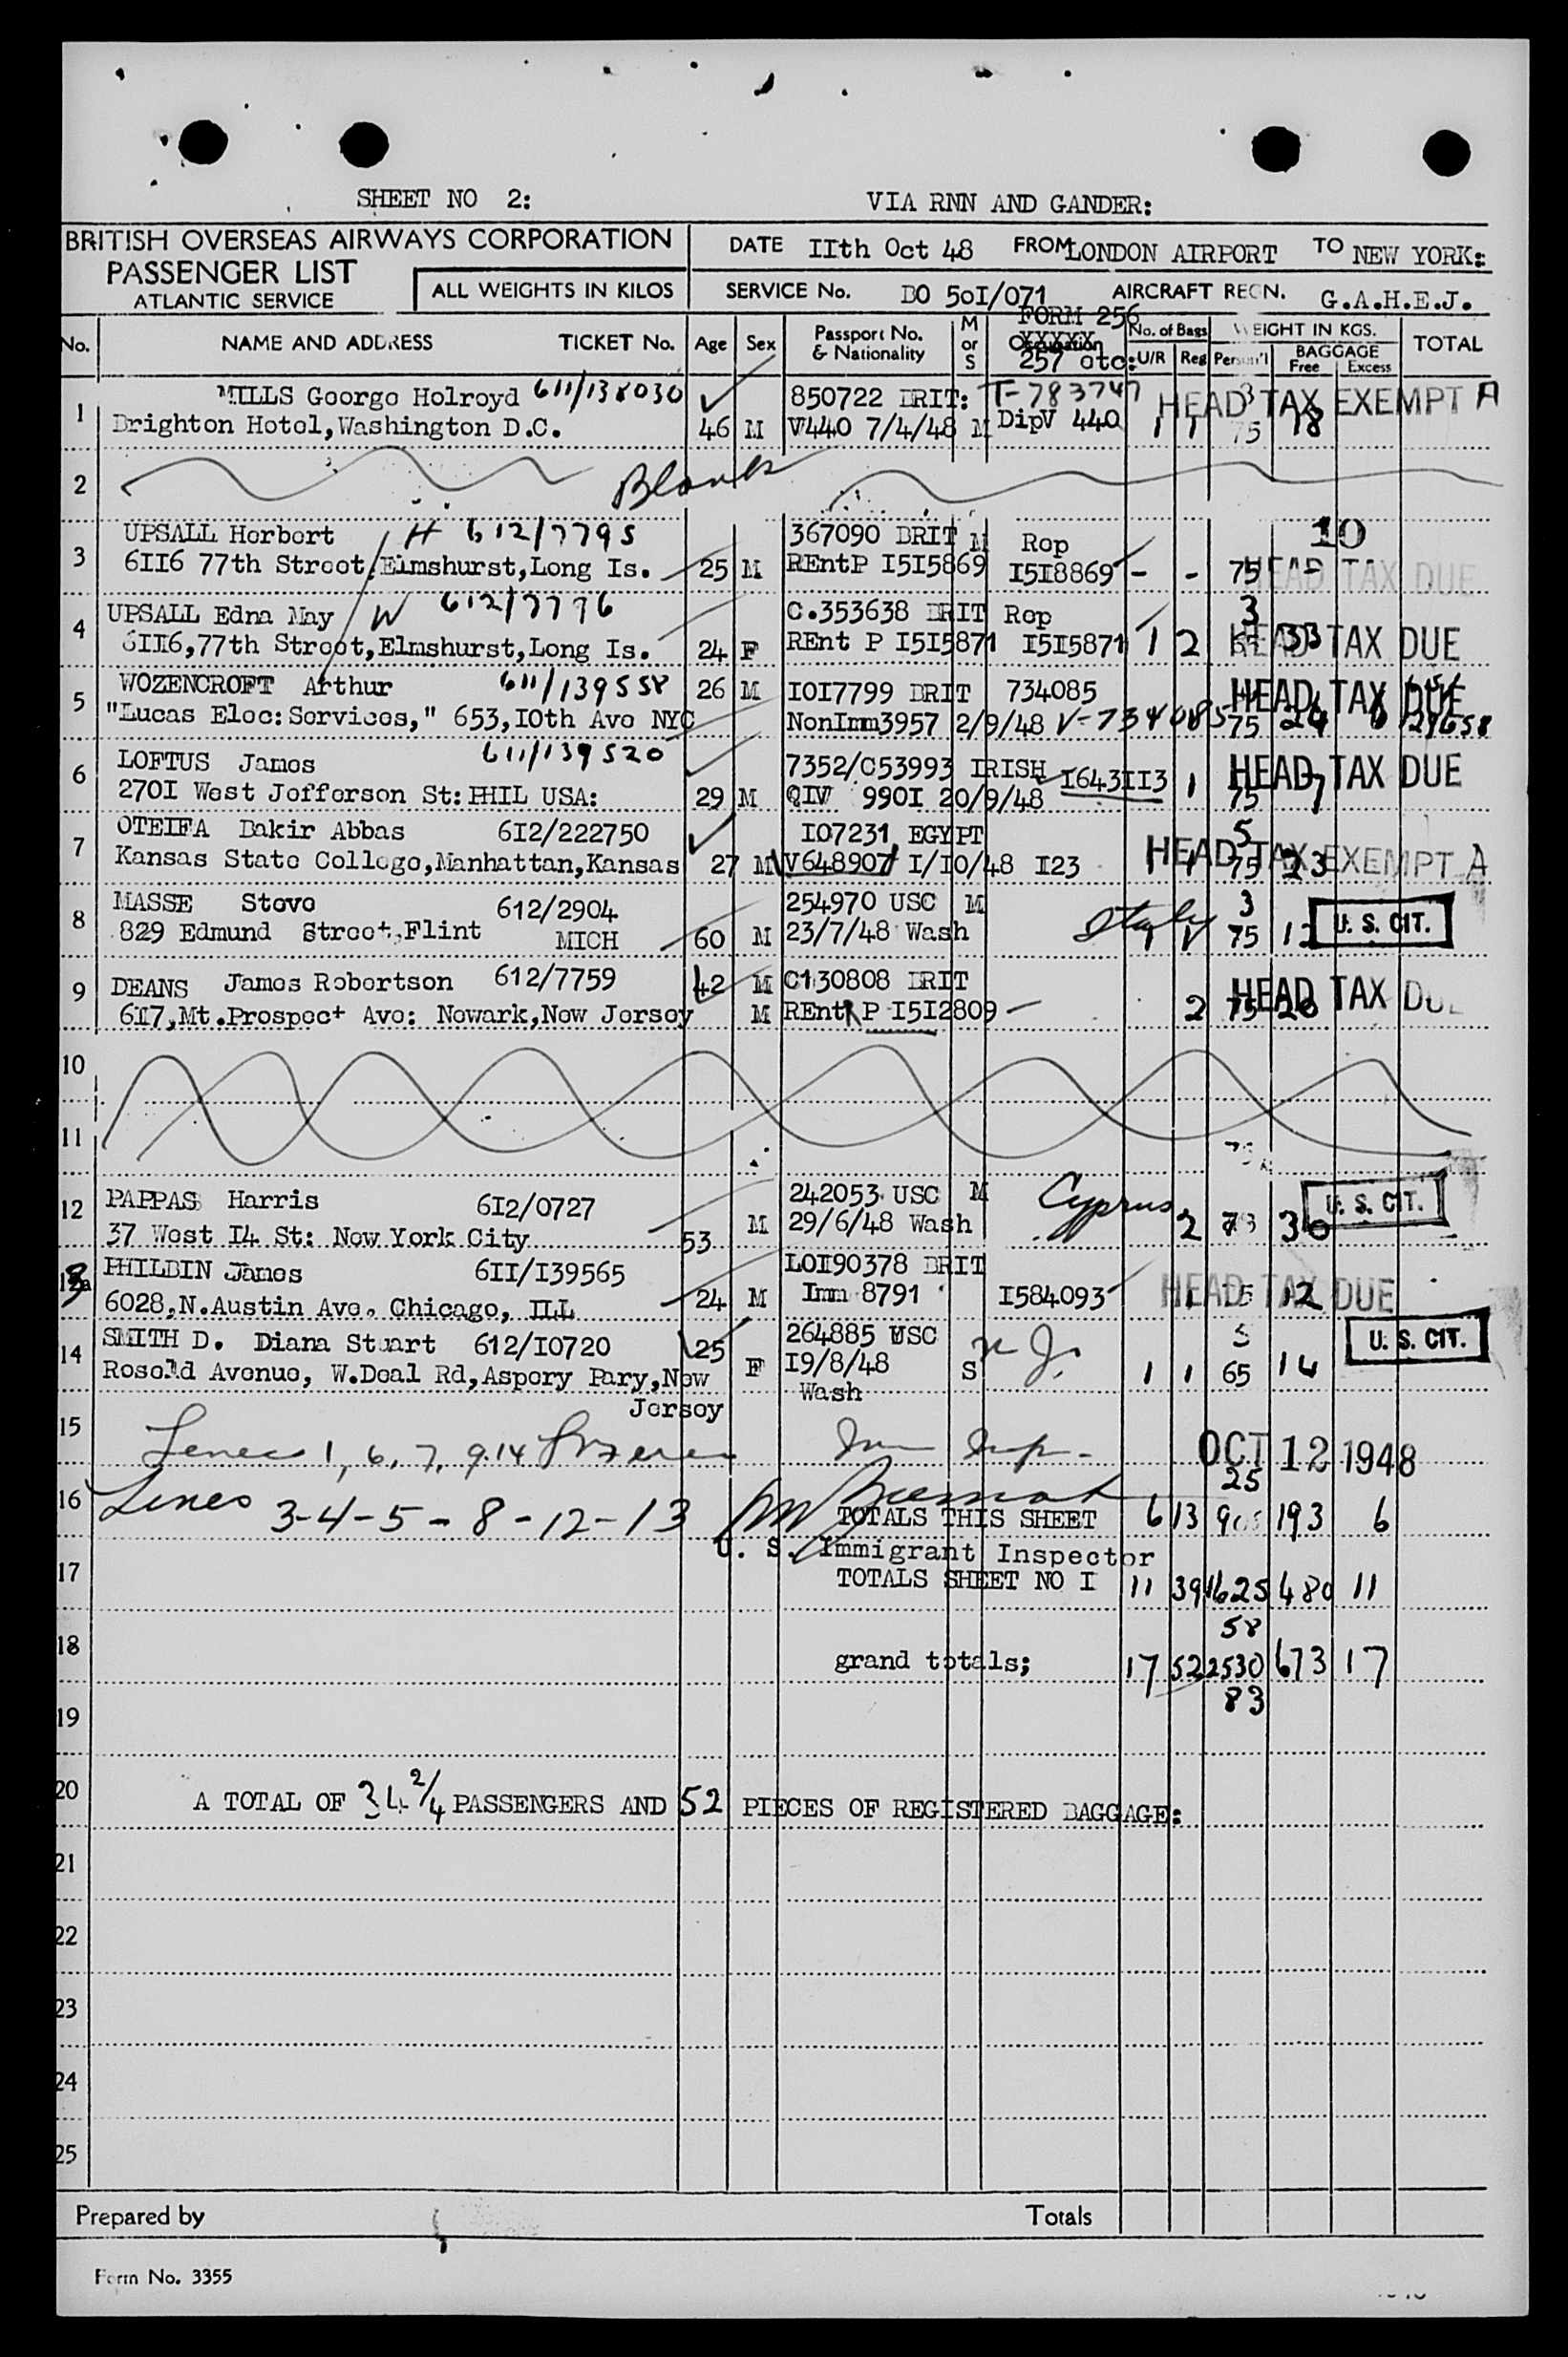 SHEET NO 2: VIA RNN AND GANDER:
BRITISH OVERSEAS AIRWAYS CORPORATION
PASSENGER LIST
ATLANTIC SERVICE
ALL WEIGHTS IN KILOS
DATE IIth Oct 48 FROM LONDON AIRPORT TO NEW YORK:
SERVICE No. BO 50I/071 AIRCRAFT REGN. G.A.H.E.J.
No. NAME AND ADDRESS TICKET No. Age Sex Passport No. & Nationality M or S FORM 256 257 etc: No. of Bags U/R Reg WEIGHT IN KGS. Person'l BAGGAGE Free Excess TOTAL
1 MILLS George Holroyd 611/138030 850722 BRIT: T-783747 3 HEAD TAX EXEMPT A
Brighton Hotel, Washington D.C. 46 M V440 7/4/48 M DipV 440 1 1 75 18
2 Blank
3 UPSALL Herbert H 612/7795 367090 BRIT M Rep 10
6II6 77th Street, Elmshurst, Long Is. 25 M REntP I5I5869 I5I8869 - - 75 - HEAD TAX DUE
4 UPSALL Edna May W 612/7796 C.353638 BRIT Rep 3
6II6, 77th Street, Elmshurst, Long Is. 24 F REnt P I5I5871 I5I5871 1 2 33 HEAD TAX DUE
5 WOZENCROFT Arthur 611/139558 26 M I0I7799 BRIT 734085 HEAD TAX DUE
"Lucas Elec: Services," 653, I0th Ave NYC NonImm3957 2/9/48 V-734085 75 24 6
6 LOFTUS James 611/139520 7352/C53993 IRISH I643II3 1 HEAD TAX DUE
270I West Jefferson St: PHIL USA: 29 M QIV 990I 20/9/48 75 7
7 OTEIFA Bakir Abbas 6I2/222750 I07231 EGYPT 5
Kansas State College, Manhattan, Kansas 27 M V648907 I/I0/48 I23 1 75 23 HEAD TAX EXEMPT A
8 MASSE Steve 612/2904 254970 USC M Italy 3
829 Edmund Street, Flint MICH 60 M 23/7/48 Wash 1 1 75 12 U. S. CIT.
9 DEANS James Robertson 612/7759 42 M C130808 BRIT
617, Mt. Prospect Ave: Newark, New Jersey M REntR P I5I2809 2 75 20 HEAD TAX DUE
10
11
12 PAPPAS Harris 6I2/0727 242053 USC M Cyprus U. S. CIT.
37 West I4 St: New York City 53 M 29/6/48 Wash 2 73 30
13 PHILBIN James 6II/I39565 L0II90378 BRIT
6028, N. Austin Ave, Chicago, ILL 24 M Imm 8791 I584093 1 12 HEAD TAX DUE
14 SMITH D. Diana Stuart 612/I0720 25 264885 USC N J. 5 U. S. CIT.
Roseld Avenue, W. Deal Rd, Aspory Pary, New F I9/8/48 S 1 1 65 14
Jersey Wash
15 1, 6, 7, 9.14 Imm Insp. OCT 12 1948
25
16 Lines 3-4-5-8-12-13 TOTALS THIS SHEET 6 13 905 193 6
U. S. Immigrant Inspector
17 TOTALS SHEET NO I 11 39 1625 480 11
58
18 grand totals; 17 52 2530 673 17
83
19
20 A TOTAL OF 34 2/4 PASSENGERS AND 52 PIECES OF REGISTERED BAGGAGE:
21
22
23
24
25
Prepared by Totals
Form No. 3355